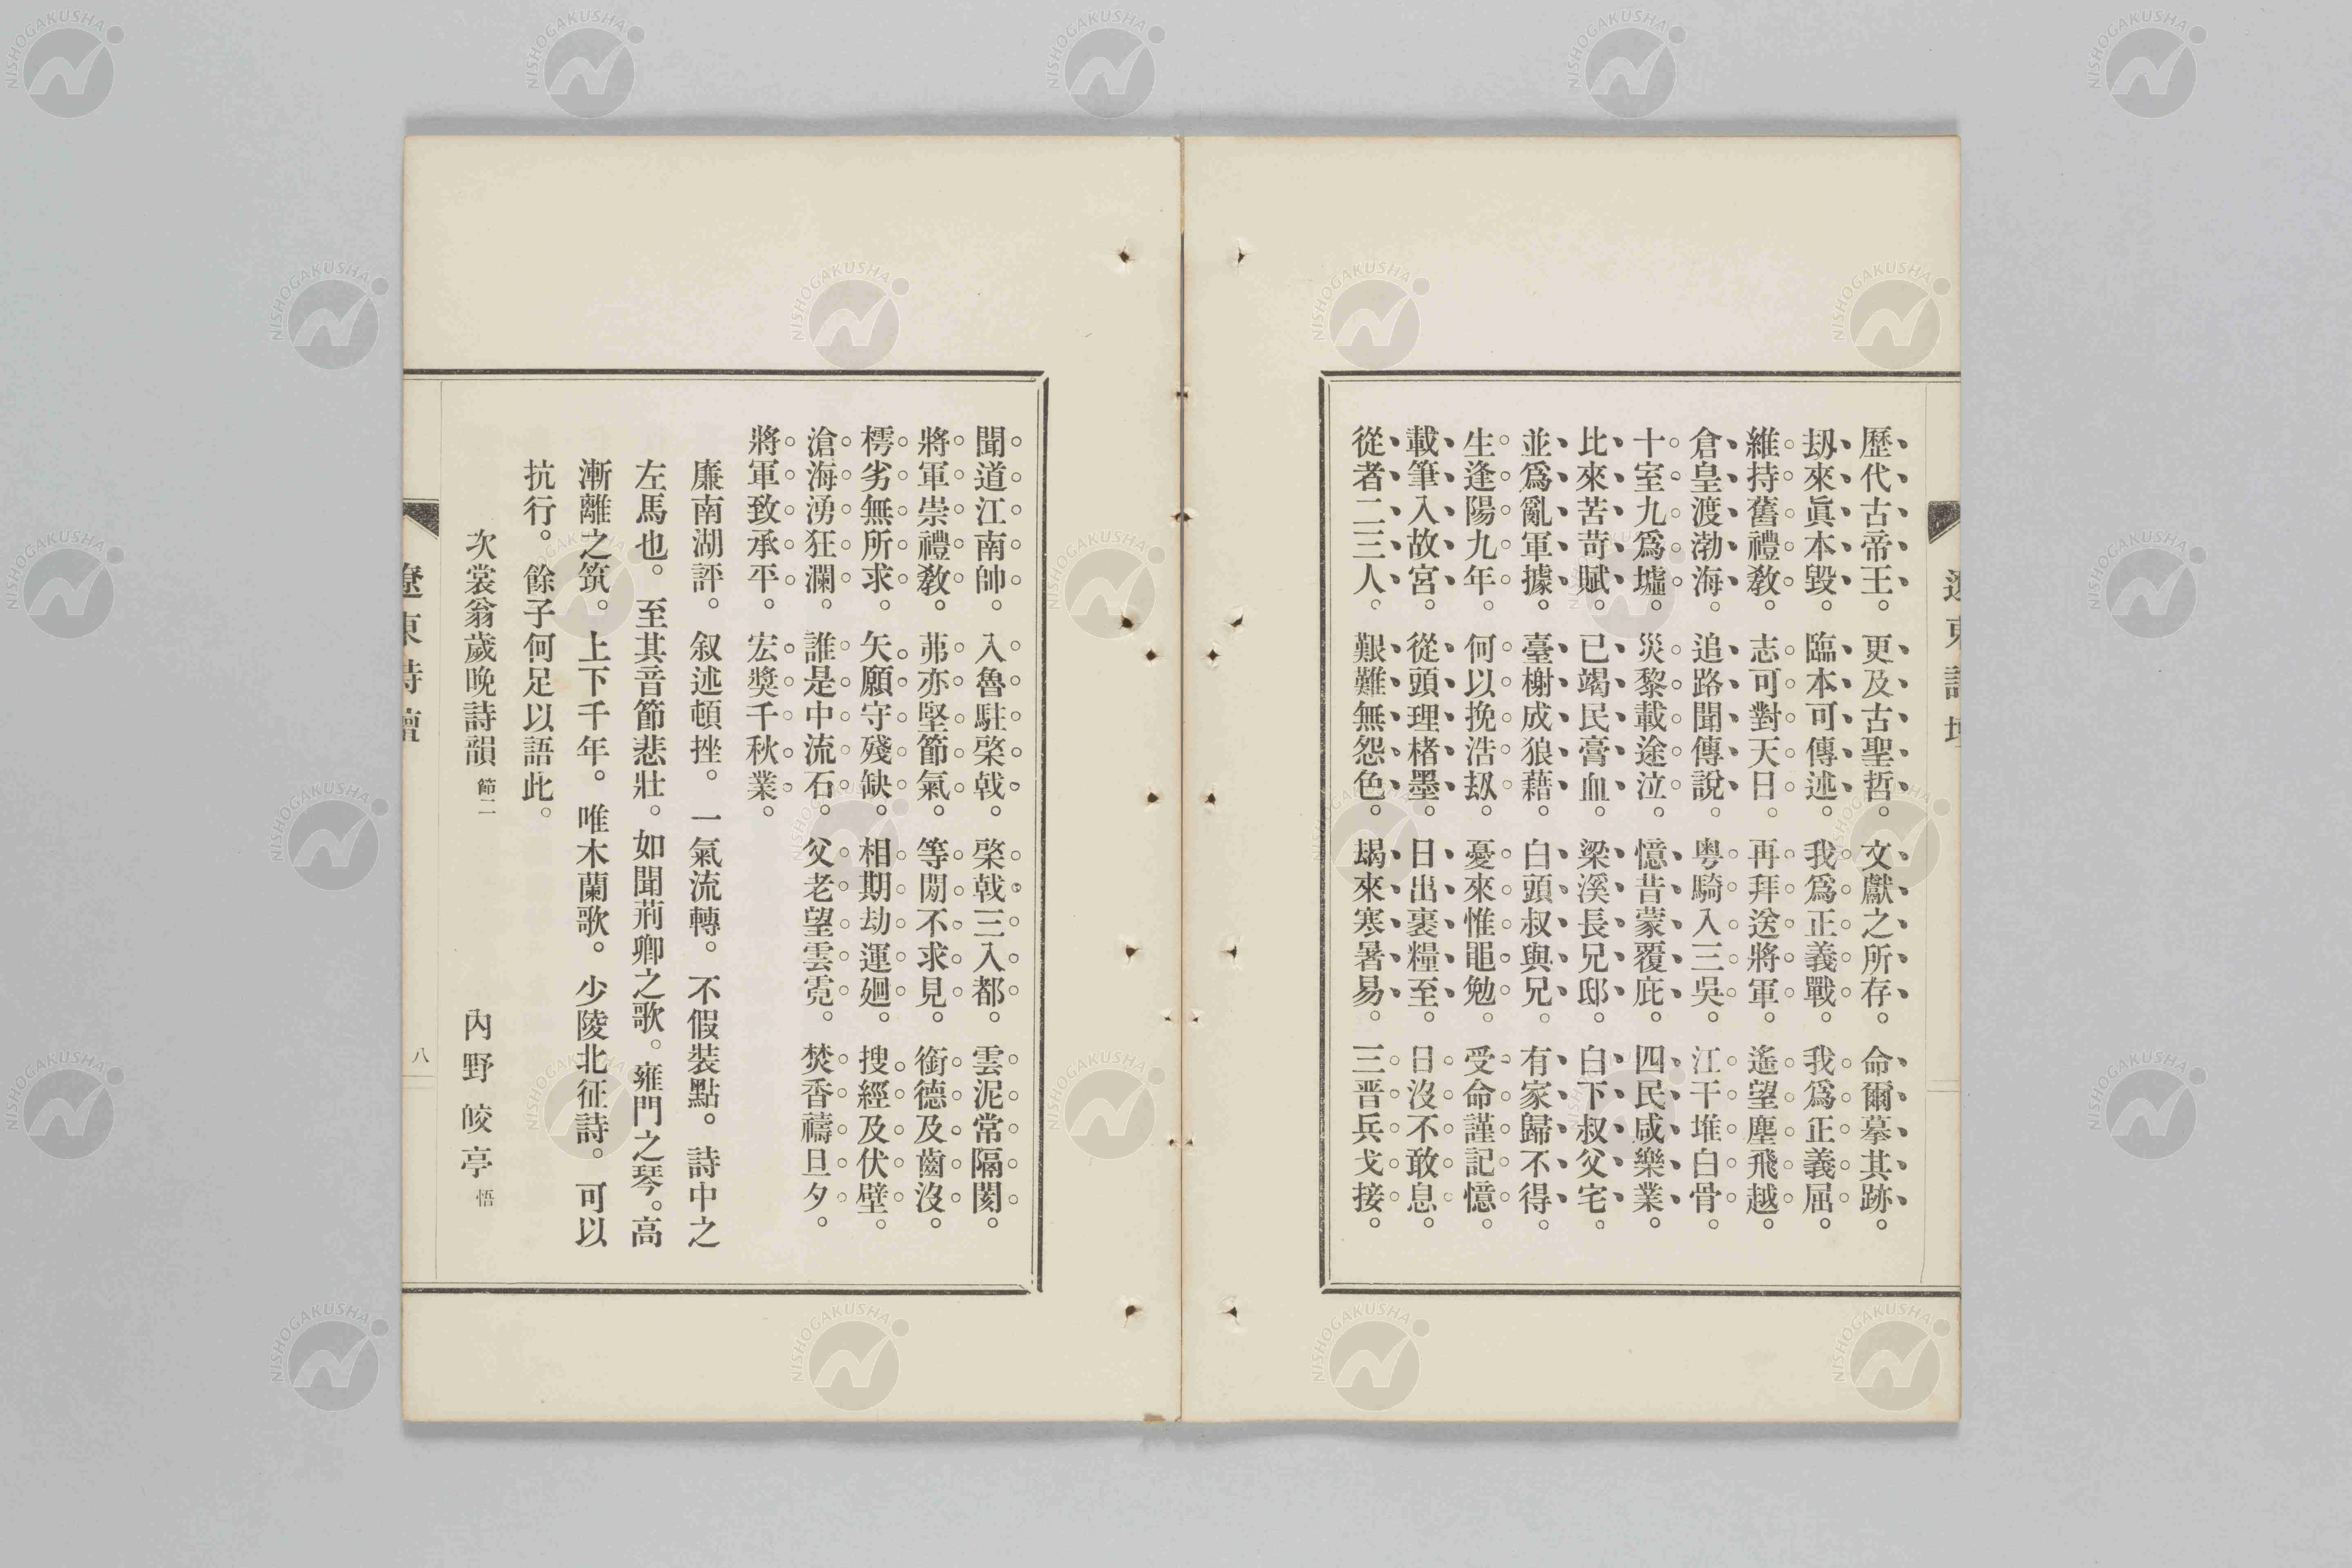 歷代古帝王。更及古聖哲。文獻之所存。命爾摹其跡。
刼來眞本毀。臨本可傳述。我爲正義戰。我爲正義屈。
維持舊禮敎。志可對天日。再拜送將軍。遙望塵飛越。
倉皇渡渤海。追路聞傳說。粤騎入三吳。江干堆白骨。
十室九爲墟。災黎載途泣。憶昔蒙覆庇。四民咸樂業。
比來苦苛賦。已竭民膏血。梁溪長兄邸。白下叔父宅。
並爲亂軍據。臺榭成狼藉。白頭叔與兄。有家歸不得。
生逢陽九年。何以挽浩刼。憂來惟黽勉。受命謹記憶。
載筆入故宮。從頭理楮墨。日出裹糧至。日沒不敢息。
從者二三人。艱難無怨色。朅來寒暑易。三晋兵戈接。
聞道江南帥。入魯駐棨戟。棨戟三入都。雲泥常隔閡。
將軍崇禮敎。茀亦堅節氣。等閒不求見。銜德及齒沒。
樗劣無所求。矢願守殘缺。相期劫運廻。搜經及伏壁。
滄海湧狂瀾。誰是中流石。父老望雲霓。焚香禱旦夕。
將軍致承平。宏獎千秋業。
廉南湖評。叙述頓挫。一氣流轉。不假裝點。詩中之
左馬也。至其音節悲壯。如聞荊卿之歌。雍門之琴。高
漸離之筑。上下千年。唯木蘭歌。少陵北征詩。可以
抗行。餘子何足以語此。
次裳翁歲晚詩韻 節二 內野皎亭 悟
遼東詩壇
八
NISHOGAKUSHA